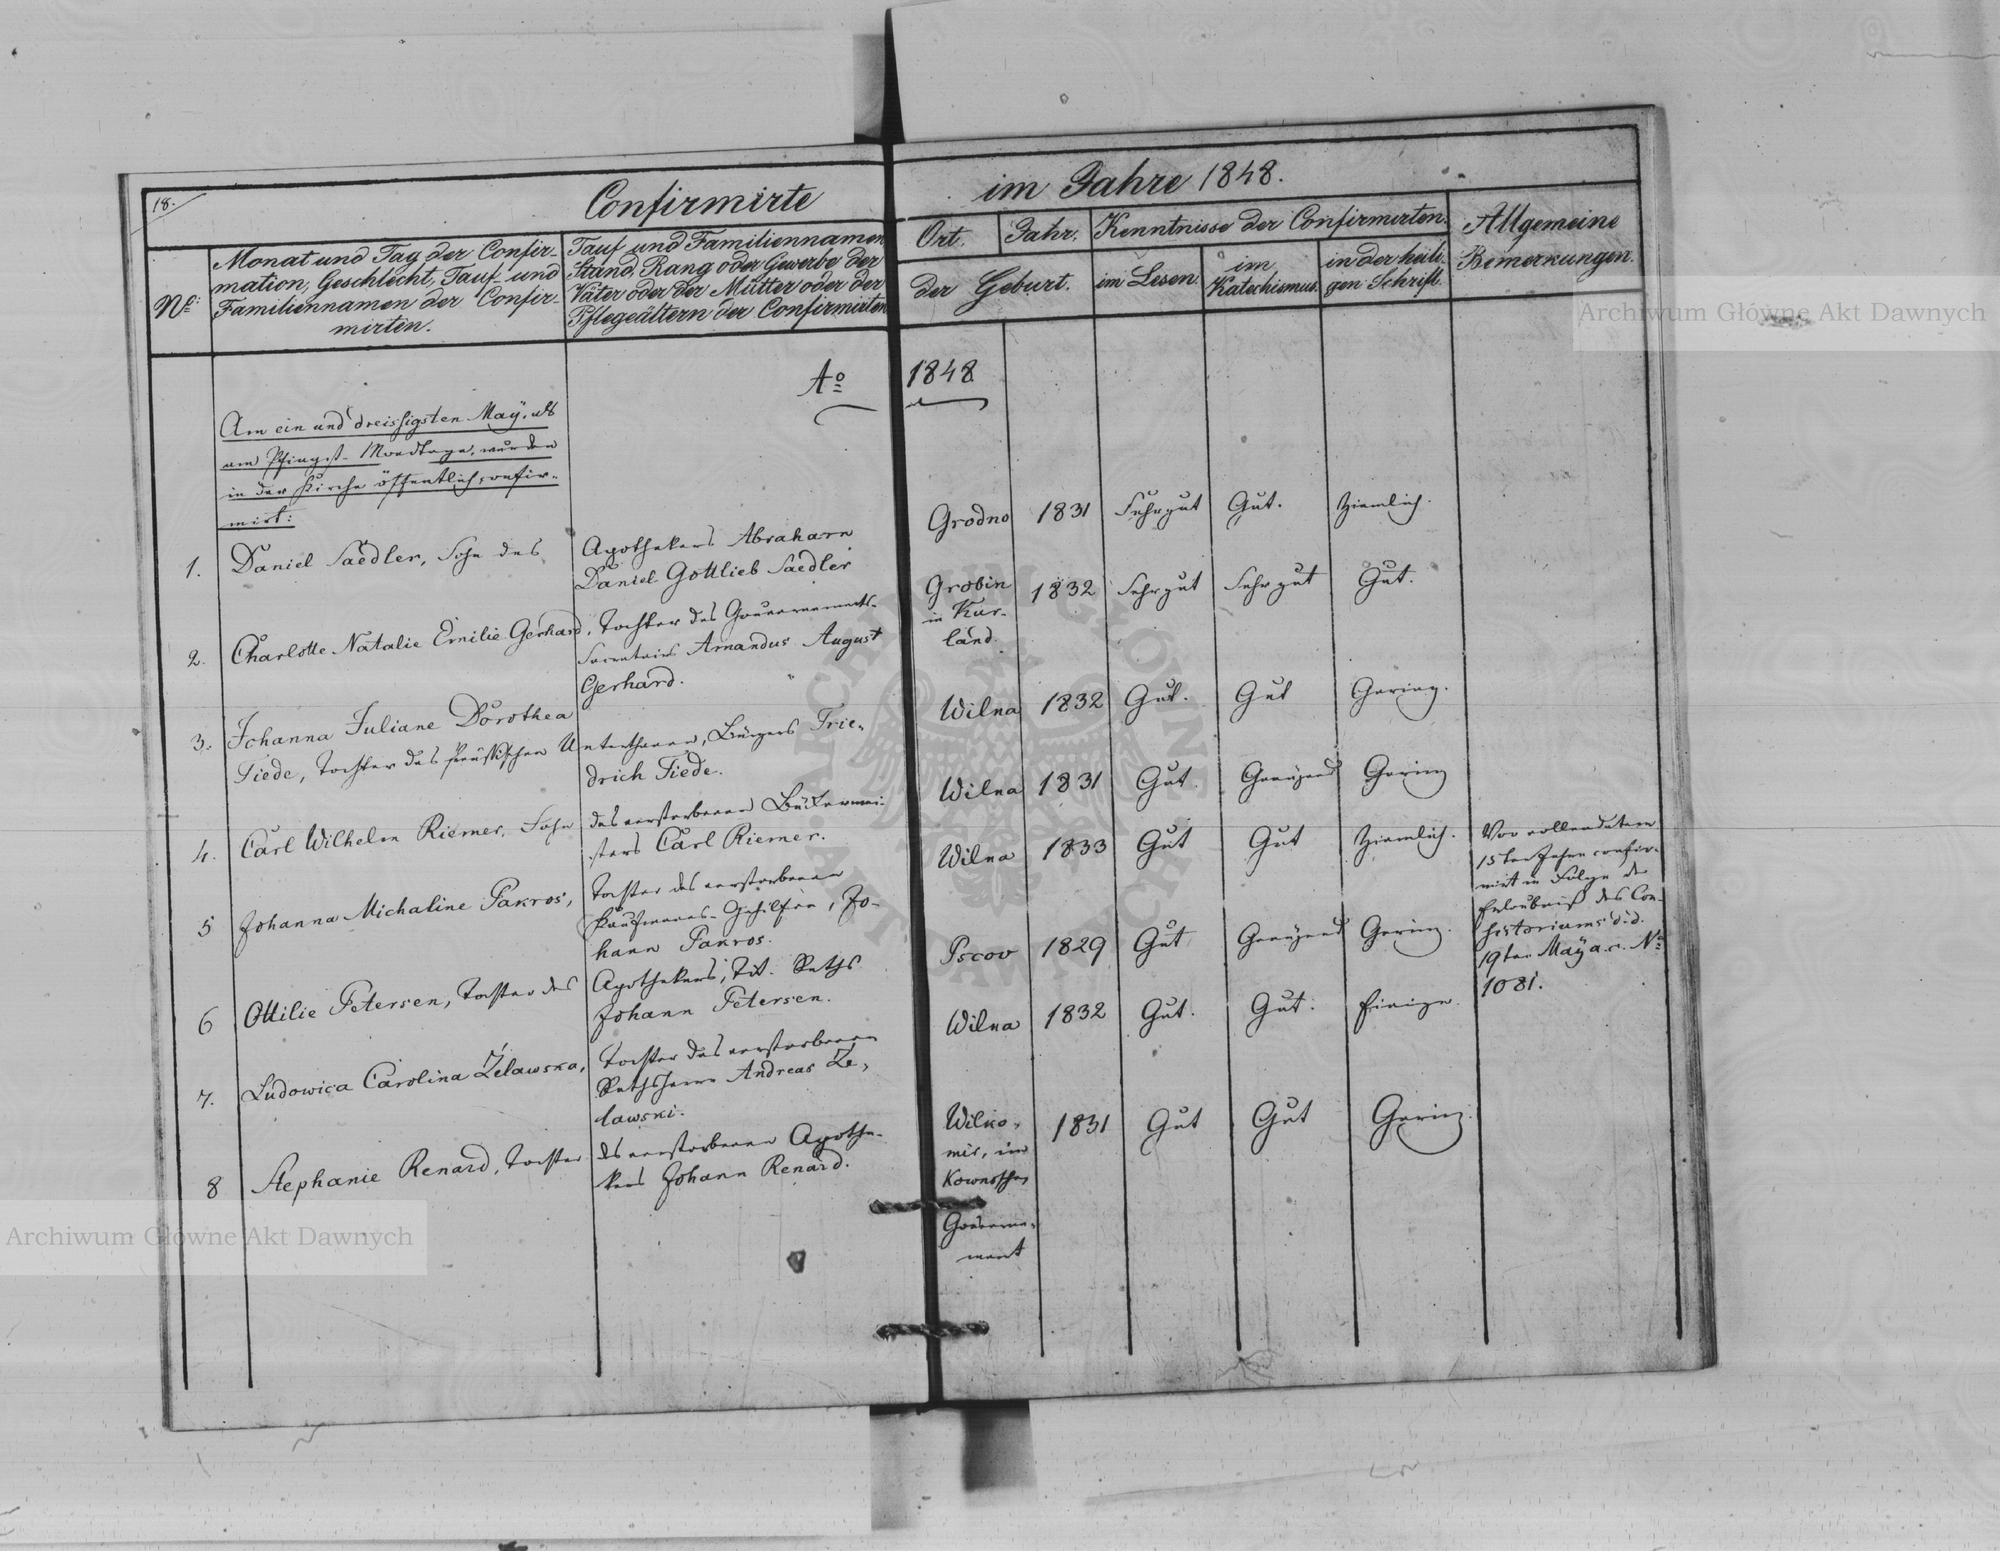 18.
Confirmirte im Jahre 1848.
Nº:
Monat und Tag der Confir-
mation, Geschlecht, Tauf- und
Familiennamen der Confir-
mirten.
Tauf und Familiennamen
Stand, Rang oder Gewerbe der
Väter oder der Mütter oder der
Pflegeältern der Confirmirten
Ort. Jahr.
der Geburt.
Kenntnisse der Confirmirten.
im Lesen.
im
Katechismus.
in der heili-
gen Schrift.
Allgemeine
Bemerkungen.
Aº 1848
Am ein und dreissigsten May, als
am Pfingst-Mondtage, wurden
in der Kirche öffentlich confir-
mirt:
1. Daniel Saedler, Sohn des
Apothekers Abraham
Daniel Gottlieb Saedler
Grodno 1831 Sehr gut Gut. Ziemlich.
2. Charlotte Natalie Emilie Gerhard, Tochter des Gouvernements-
Secretairs Amandus August
Gerhard.
Grobin
in Kur-
land.
1832 Sehr gut Sehr gut Gut.
3. Johanna Juliane Dorothea
Tiede, Tochter des Preußischen Unterthanen, Bürgers Frie-
drich Tiede.
Wilna 1832 Gut. Gut Gering.
4. Carl Wilhelm Riemer, Sohn des verstorbenen Bäckermei-
sters Carl Riemer.
Wilna 1831 Gut. Genügend Gering
5 Johanna Michaline Pakros,
Tochter des verstorbenen
Kaufmanns-Gehilfen, Jo-
hann Pakros.
Wilna 1833 Gut Gut Ziemlich.
Vor vollendetem
15ten Jahre confir-
mirt in Folge der
Erlaubniß des Con-
sistoriums d.d.
19ten May a. c. Nº
1081.
6 Ottilie Petersen, Tochter des
Apothekers, Tit. Raths
Johann Petersen.
Pscov 1829 Gut Genügend Gering.
7. Ludowica Carolina Żelawska,
Tochter des verstorbenen
Rathsherrn Andreas Że-
lawski.
Wilna 1832 Gut. Gut. Einige.
8 Stephanie Renard, Tochter des verstorbenen Apothe-
kers Johann Renard.
Wilko-
mir, im
Kownoschen
Gouverne-
ment
1831 Gut Gut Gering.
Archiwum Główne Akt Dawnych
Archiwum Główne Akt Dawnych
ARCHIWUM GŁÓWNE AKT DAWNYCH